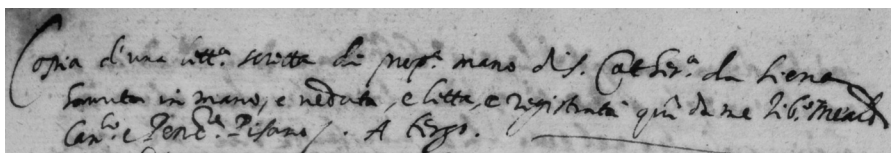 Copia d'una lett.ra scritta di prop.a mano di S. Cather.a da Siena
havuta in mano, e veduta, e letta, e registrata qui da me
Can.co e Penit.re Pisano. A tergo.